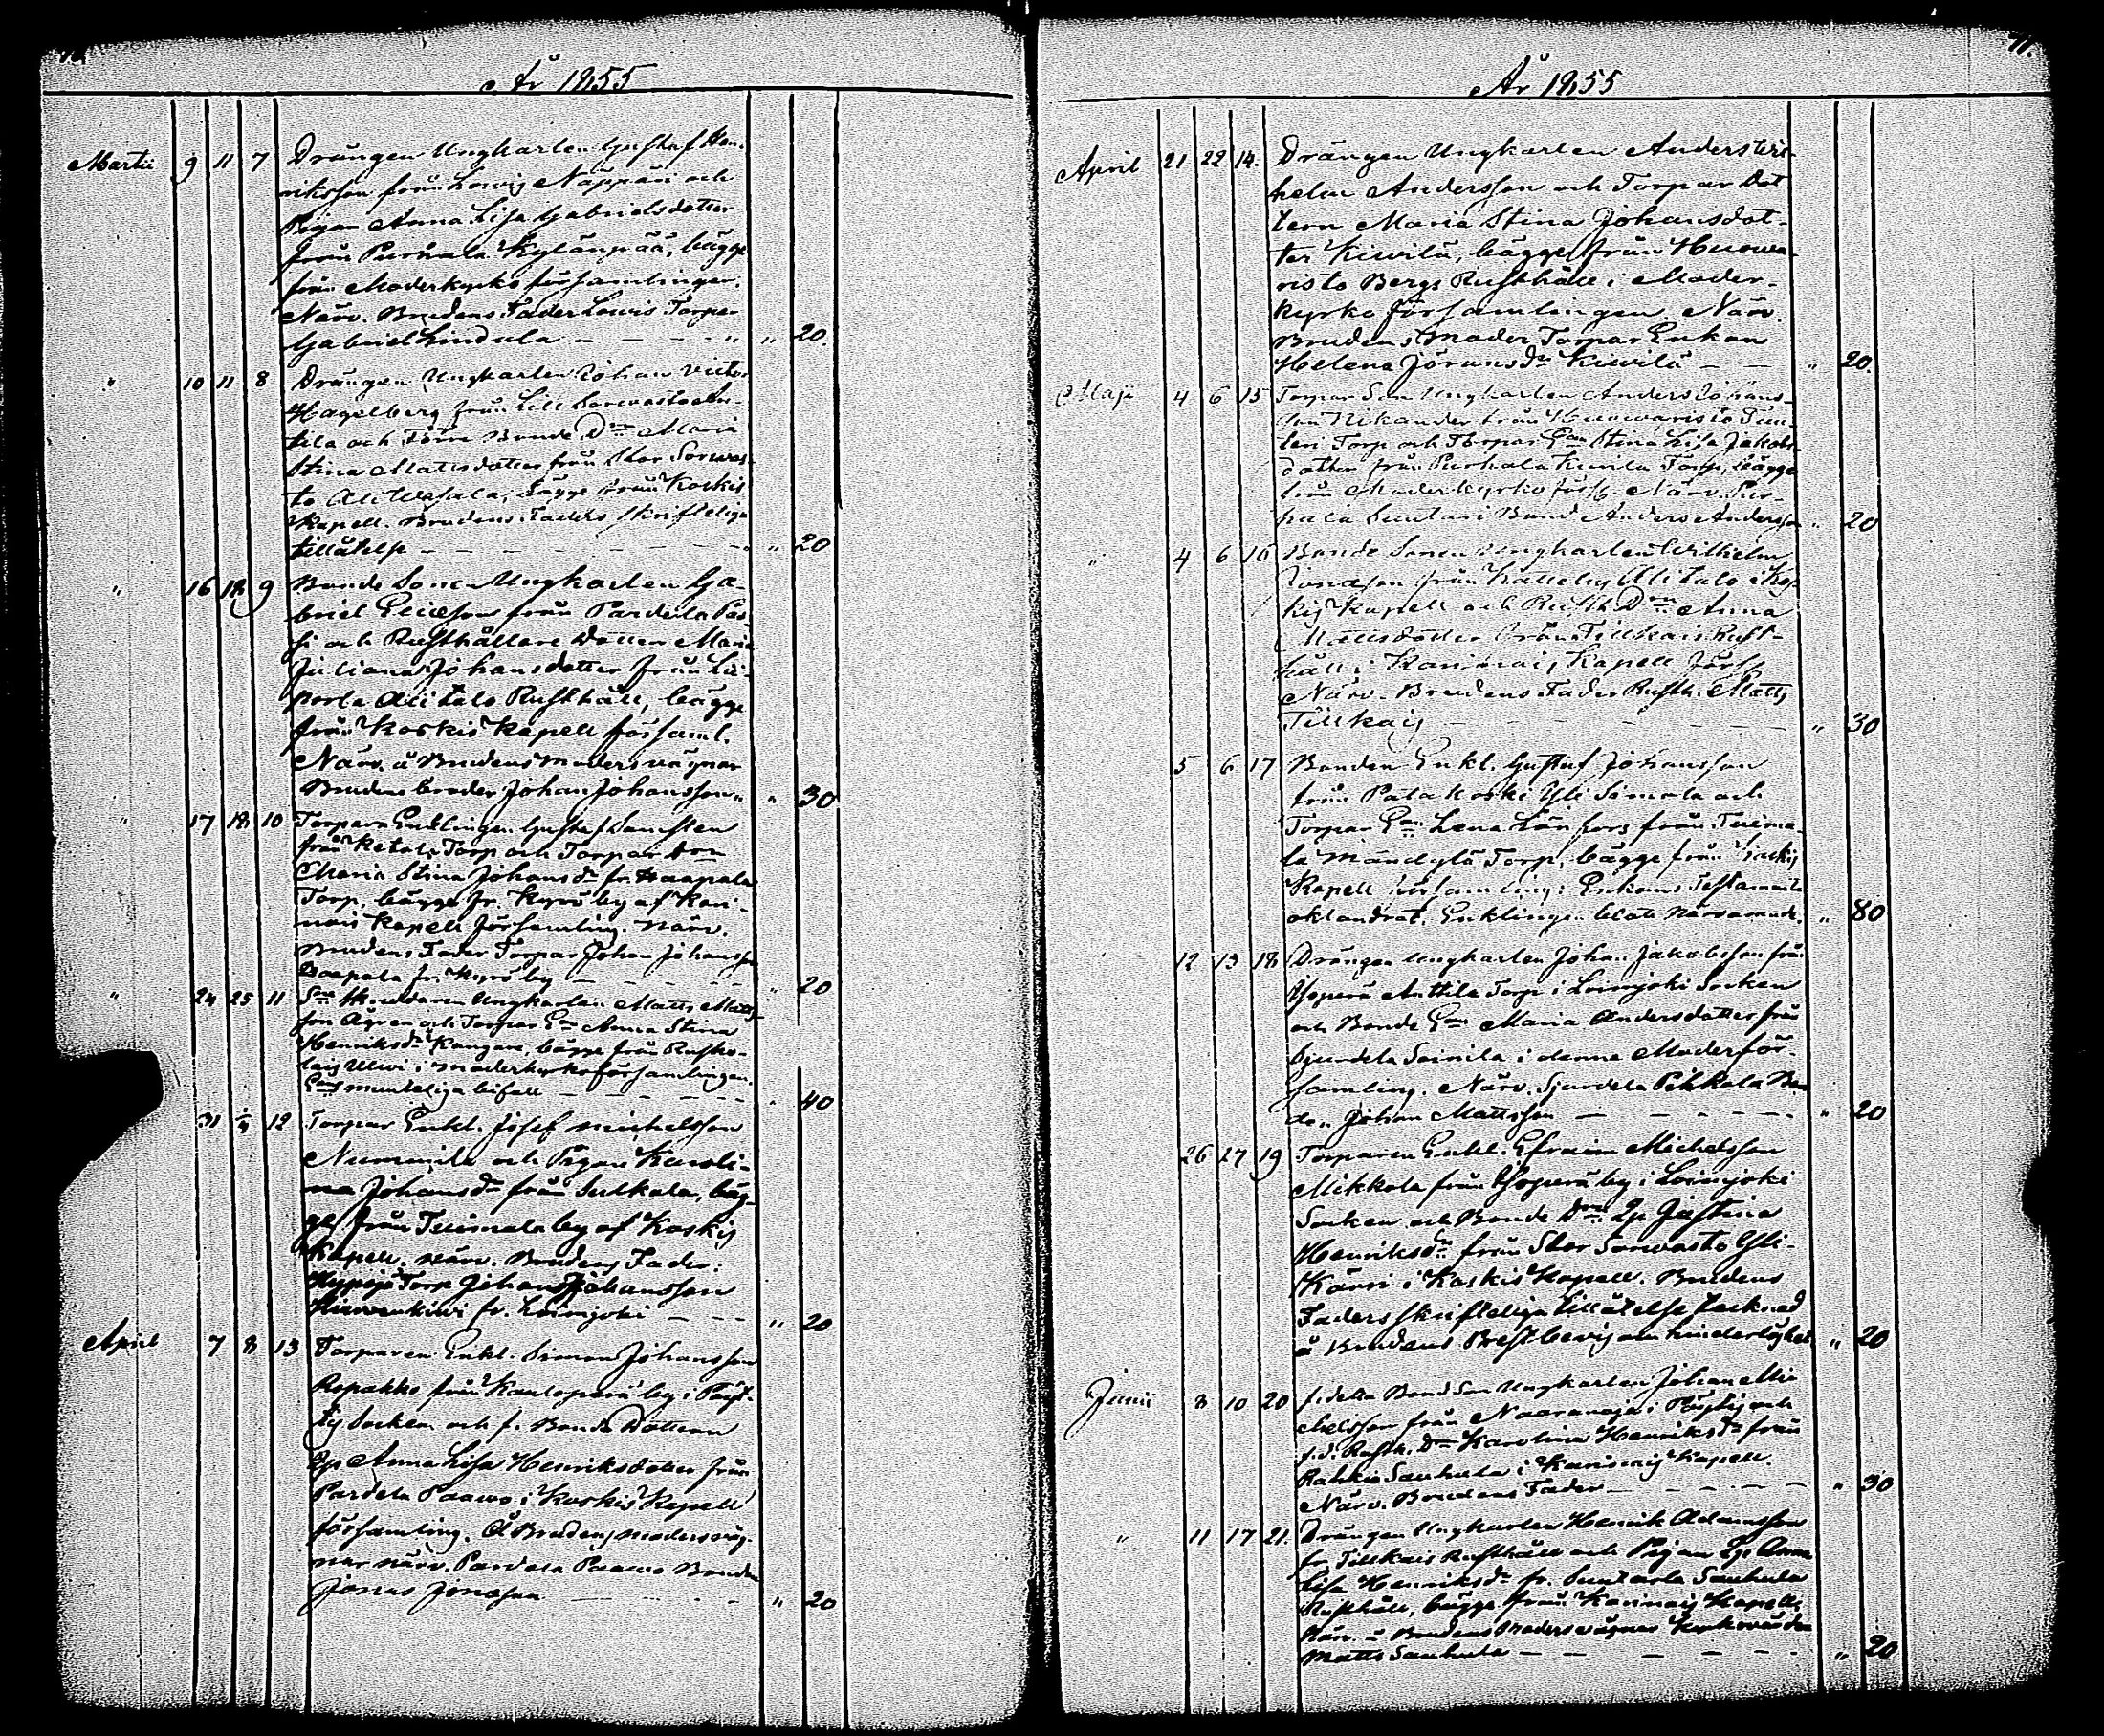 År 1855
Martii 9 11 7 Drängen Ungkarlen Gustaf Hen-
riksson från Lowis Näppäri och
Pigan Anna Lisa Gabrielsdotter
från Purhala Kylänpää, bägge
från Moderkyrko församlingen.
Närv. Brudens Fader Lowis Torpar
Gabriel Lindula — — — " " 20.
" 10 11 8 Drängen Ungkarlen Johan Victor
Hagelberg från Lill Sorwasto An-
tila och Bonde D:ren Maria
Stina Mattsdotter från Stor Sorwas-
to Ali Wesala, bägge från Koskis
Kapell. Brudens Faders skrifteliga
tillåtelse — — — " " 20
" 16 18 9 Bonde Sonen Ungkarlen Ga-
briel Eliasson från Pardela Pas-
si och Rusthållare Dottern Maria
Juliana Johansdotter från Lii-
pola Ali talo Rusthåll, bägge
från Koskis Kapell församl.
Närv. å Brudens moders vägnar
Brudens broder Johan Johansson " " 30
" 17 18 10 Torparen Enklingen Gustaf
från Ketola Torp och Torpar D:ren
Maria Stina Johansd:r fr. Haapala
Torp, bägge fr. Kyrö by af Kari-
nais Kapell församling. närv.
Brudens Fader Torpar Johan Johansson
Haapala fr. Kyrö by — — — " 20
" 24 25 11 Ungkarlen Matts Matts-
son och Torpar E:an Anna Stina
Henriksd:r Kangare, bägge från Rusko-
lais Ulwi i moderkyrkoförsamlingen.
munteliga bifall — — — " 40
31 1/4 12 Torpar Enkl. Josef Michelsson
Nummila och Pigan Karoli-
na Johansd:r från Sulkala, bäg-
ge från Tuimala by af Koskis
Kapell. närv. Brudens Fader:
Torp. Johan Johansson
fr. Loimjoki — — — " 20
April 7 8 13 Torparen Enkl. Simon Johansson
Ropakko från Kaulanperä by i Pöy-
tis Socken och f. Bonde Dottern
Anna Lisa Henriksdotter från
Pardela Paawo i Koskis Kapell
församling. Å Brudens moders väg-
nar närv. Pardela Paawo Bonde
Jonas Jonasson — — — " 20
71.
År 1855
April 21 22 14. Drängen Ungkarlen Anders Wil-
helm Andersson och Torpar Dot
tern Maria Stina Johansdot-
ter Kiwilä, bägge från Huowa-
risto Bergs Rusthåll i Moder-
kyrko församlingen. Närv.
Brudens moder Torpar Enkan
Helena Jöransd:r Kiwilä — — " 20.
Maji 4 6 15 Torpar Son Ungkarlen Anders Johans-
son Nikander från Huowaristo
Torp och Torpar E:an Stina Lisa Jakobs-
dotter från Purhala Kiwilä Torp, bägge
från Moderkyrko förs. Närv. Pur-
hala Suutari Bond Anders Andersson " 20
" 4 6 16 Bonde Sonen Ungkarlen Wilhelm
Jonasson från Kätteby Ali Talo i Kos-
kis Kapell och Rusth. D:ren Anna
Mattsdotter från Tillkais Rust-
håll i Karinais Kapell förs.
Närv. Brudens Fader Rusth. Matts
Tillkais — — — " 30
5 6 17 Bonden Enkl. Gustaf Johansson
från Patakoski Yli Simola och
Torpar E:an Lena Länfors från Tuima-
la Mändylä Torp, bägge från Koskis
Kapell församling: Enkans Testamente
oklandrat. Enklingen närvarande. " 80
12 13 18 Drängen Ungkarlen Johan Jakobsson från
Ypperä Anttila Torp i Loimjoki Socken
och Bonde E:an Maria Andersdotter från
Sjundela Seinila i denna Moderför-
samling. Närv. Sjundela Pihkala Bon
den Johan Mattsson — — — " 20
26 27 19 Torparen Enkl. Efraim Michelsson
Mikkola från Yperä by i Loimjoki
Socken och Bonde D:ren Justina
Henriksd:r från Stor Sorwasto Yli-
Käwri i Koskis Kapell. Brudens
Faders skrifteliga tillåtelse tecknad
å Brudens Prestbevis om hinderlöshet " 20
Junii 8 10 20 f. detta Bond Son Ungkarlen Johan Mi-
chelsson från Naaranoja i Pöytis och
f.d. Rusth. D:r Karolina Henriksd:r från
Rahkio Sauhula i Karinais Kapell.
Närv. Brudens Fader — — — " 30
" 11 17 21. Drängen Ungkarlen Henrik Adamsson
fr. Tillkais Rusthåll och Pigan Anna
Lisa Henriksd:r fr. Suntarla Sauhula
Rusthåll, bägge från Karinais Kapell.
Närv. å Brudens Moders vägnar Kyrkovärden
Matts Sauhula — — — " 20